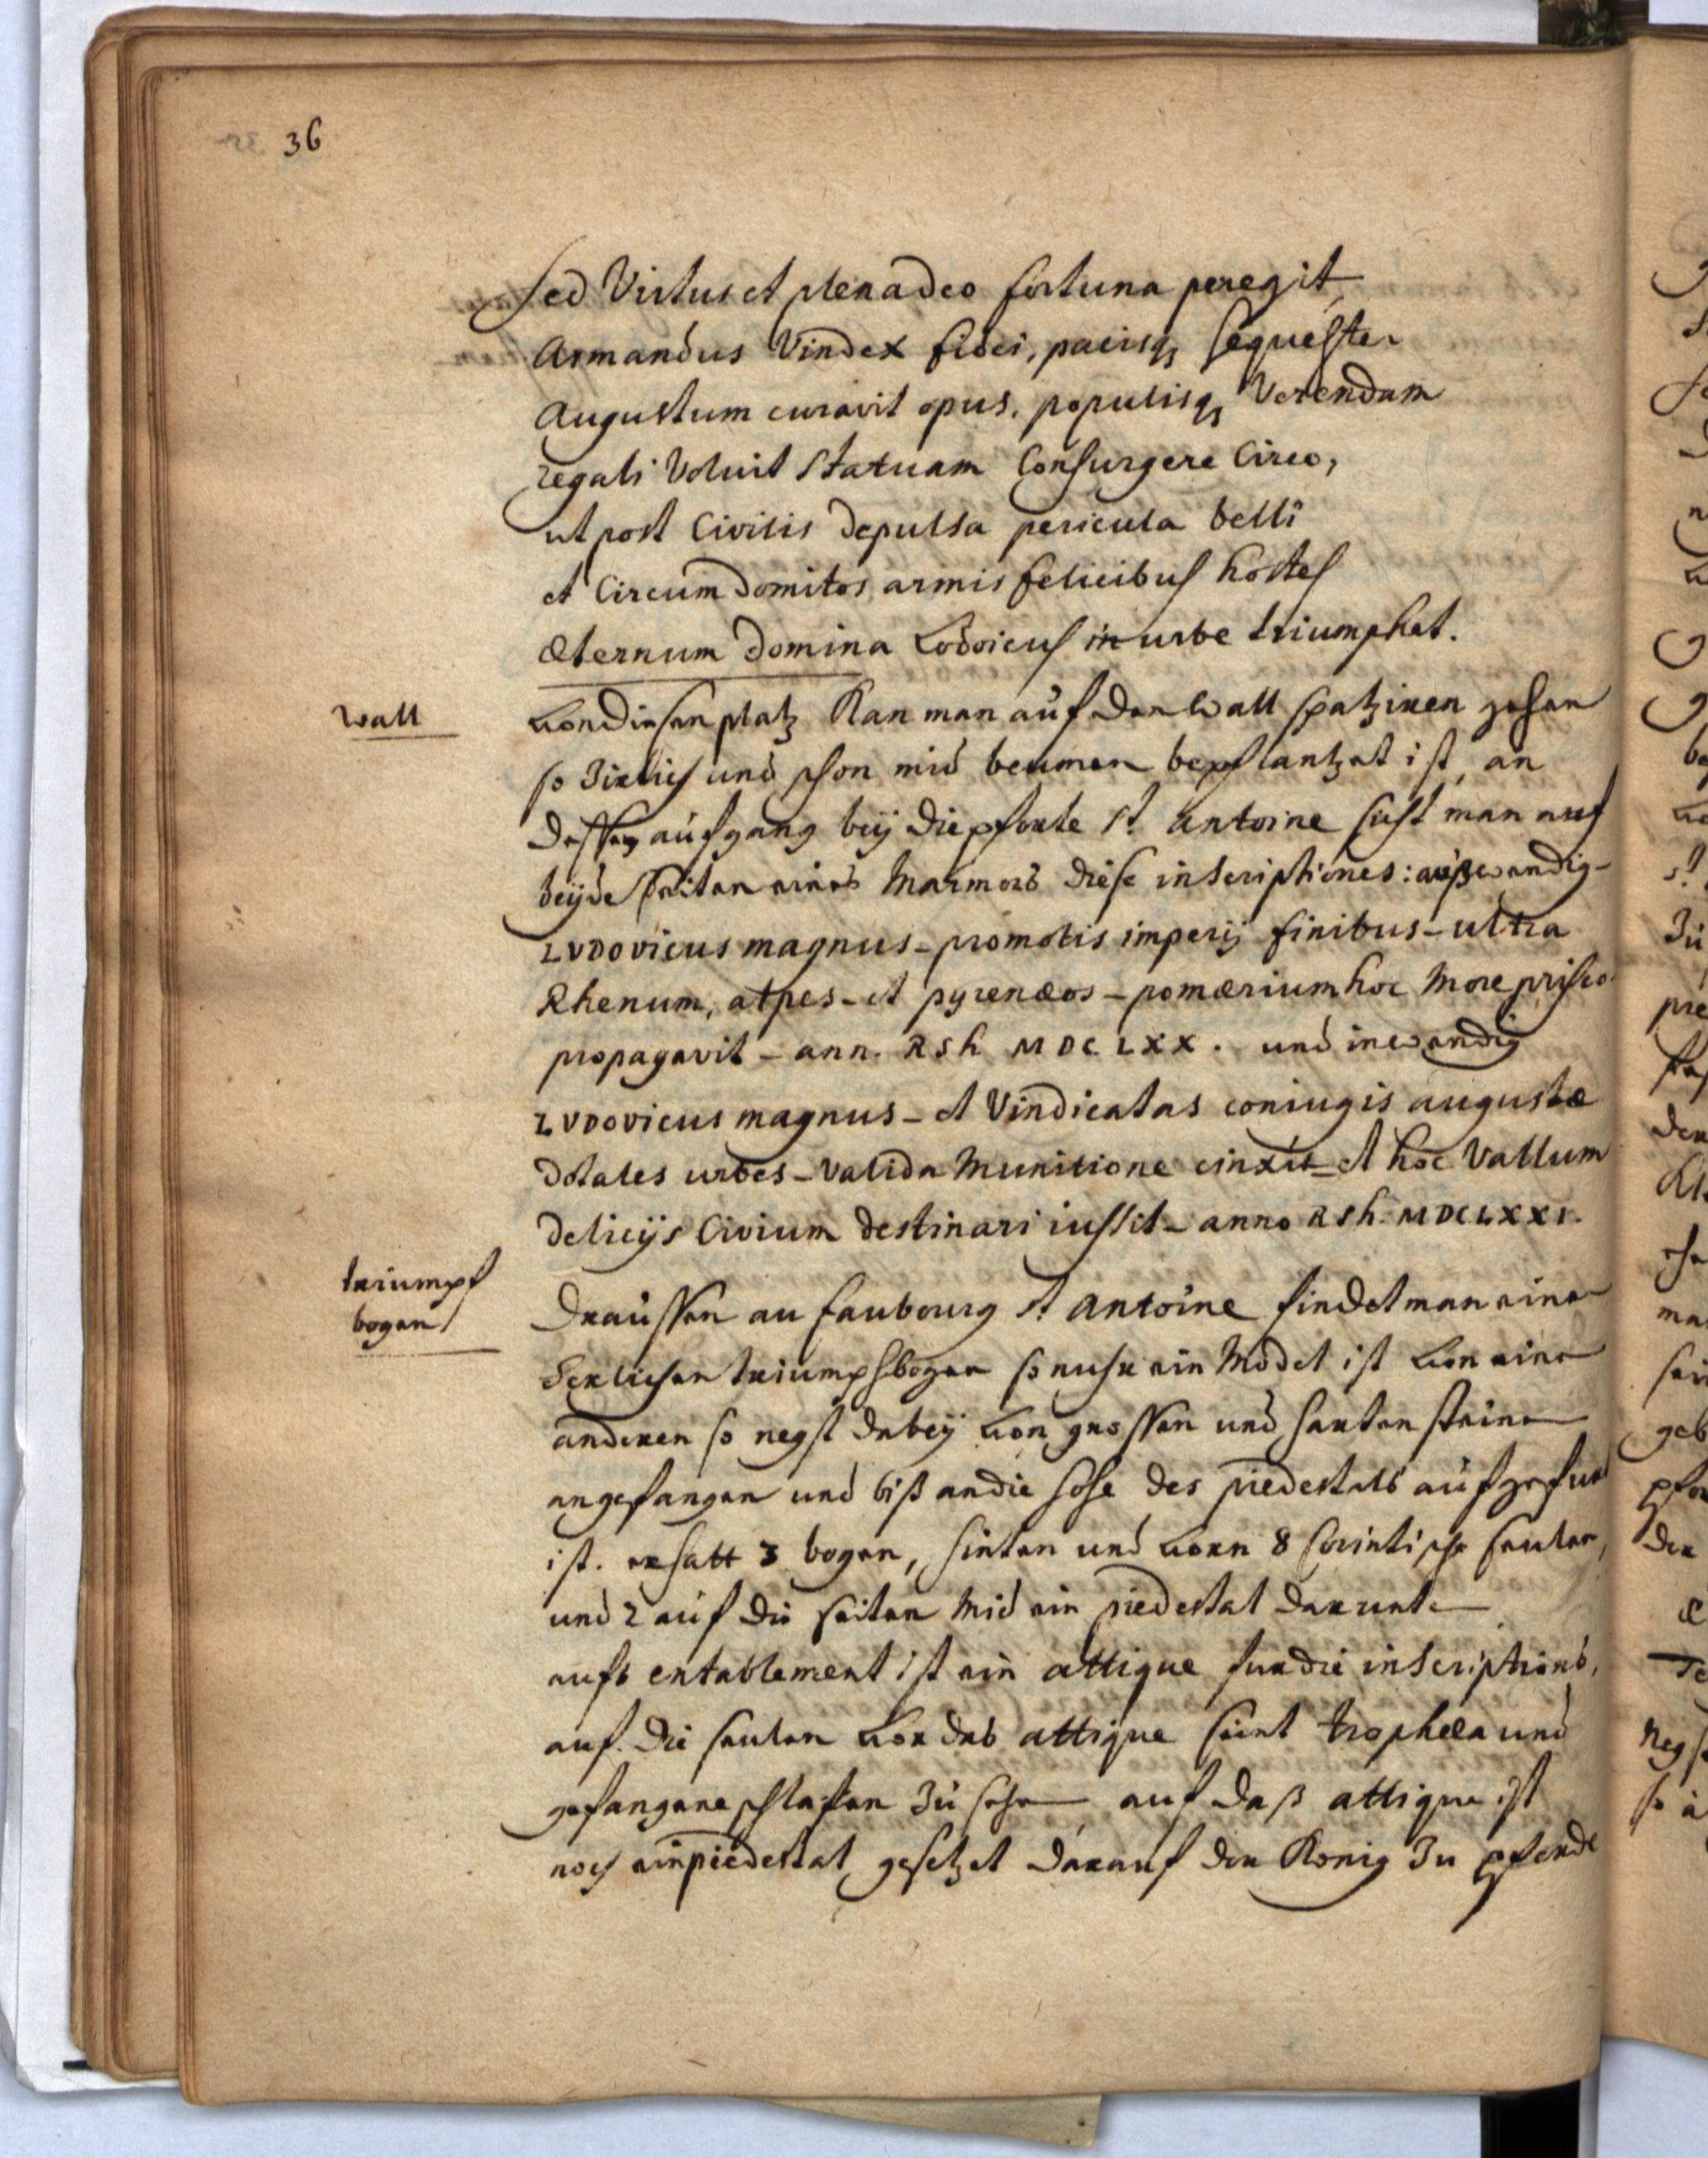 36
sed Virtus et plena deo fortuna peregit
Armandus Vindex fidei, pacisq sequester
Augustum curavit opus, populisq Verendam
regali Voluit statuam Consurgere Circo,
ut post Civilis depulsa pericula belli
et Circum domitos armis felicibus hostes
æternum domina Lodoicus in urbe triumphet.
wall
Von diesen platz Kan man auf den wall spatziren gehen
so Zirlich und schon mid beumen bepflantzet ist, an
dessen aufgang beÿ die pforte St. Antoine siht man auf
beÿde seiten eines Marmors diese inscriptiones: außwendig-
LVDOVICUS magnus - promotis imperij finibus - ultra
Rhenum, alpes - et pyrenæos - pomærium hoc More prisco
propagavit - ann. RSh MDCLXX. und inwendig
LVDOVICUS magnus - et Vindicatas coniugis augustæ
dotales urbes - Valida Munitione cinxit - et hoc Vallum
delicijs Civium destinari iussit - anno RSh. MDCLXXI.
triumpf
bogen
Draussen au faubourg St Antoine findet man einen
herlichen triumphbogen so nuhr ein Model ist von einen
anderen so negst dabeÿ von grossen und harten steinen
angefangen und biß an die hohe des piedestals aufgefuhrt
ist. er hatt 3 bogen, hinten und vorn 8 Corintische seulen,
und 2 auf die seiten Mid ein piedestal darunter
aufs entablement ist ein attique fur die inscriptions,
auf die seulen vor das attique sient trophæa und
gefangene schlafen Zu sehen auf daß attique ist
noch ein piedestal gesetzet darauf den Konig Zu pferde